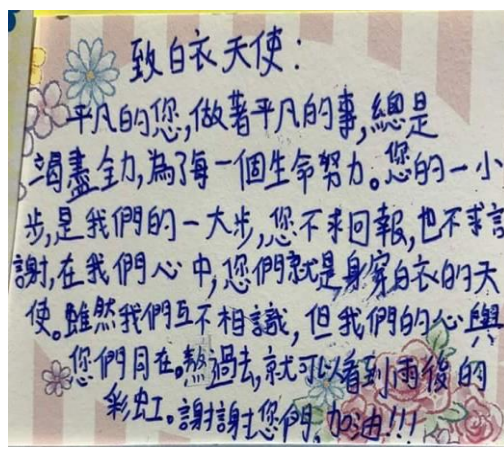 致白衣天使：
平凡的您,做著平凡的事,總是
竭盡全力,為了每一個生命努力。您的一小
步,是我們的一大步,您不求回報,也不求言
謝,在我們心中,您們就是身穿白衣的天
使。雖然我們互不相識,但我們的心與
您們同在。熬過去,就可以看到雨後的
彩虹。謝謝您們,加油!!!